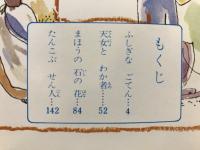 もくじ
ふしぎな ごてん…4
天女と わか者……52
まほうの 石の 花……84
たんこぶ せん人……142